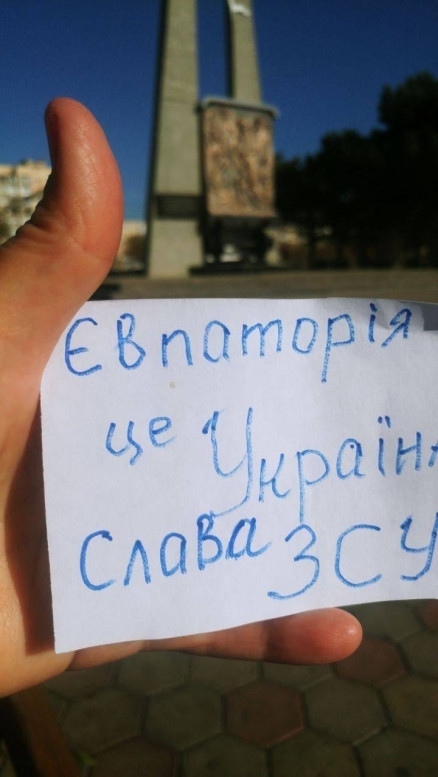 Євпаторія
це Україна
Слава ЗСУ